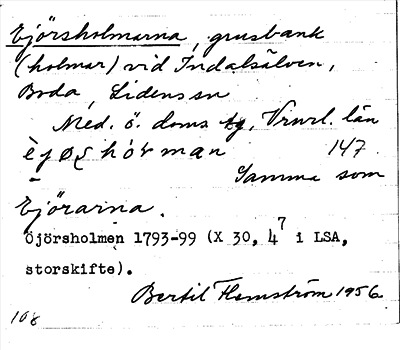 Ejörsholmarna, grusbank
(holmar) vid Indalsälven,
Boda, Lidens sn
Med. ö. doms. tg, Vrnrl. län
147
Samma som
Ejörarna.
Öjörsholmen 1793-99 (X 30, 4⁷ i LSA,
storskifte).
Bertil Flemström 1956
108